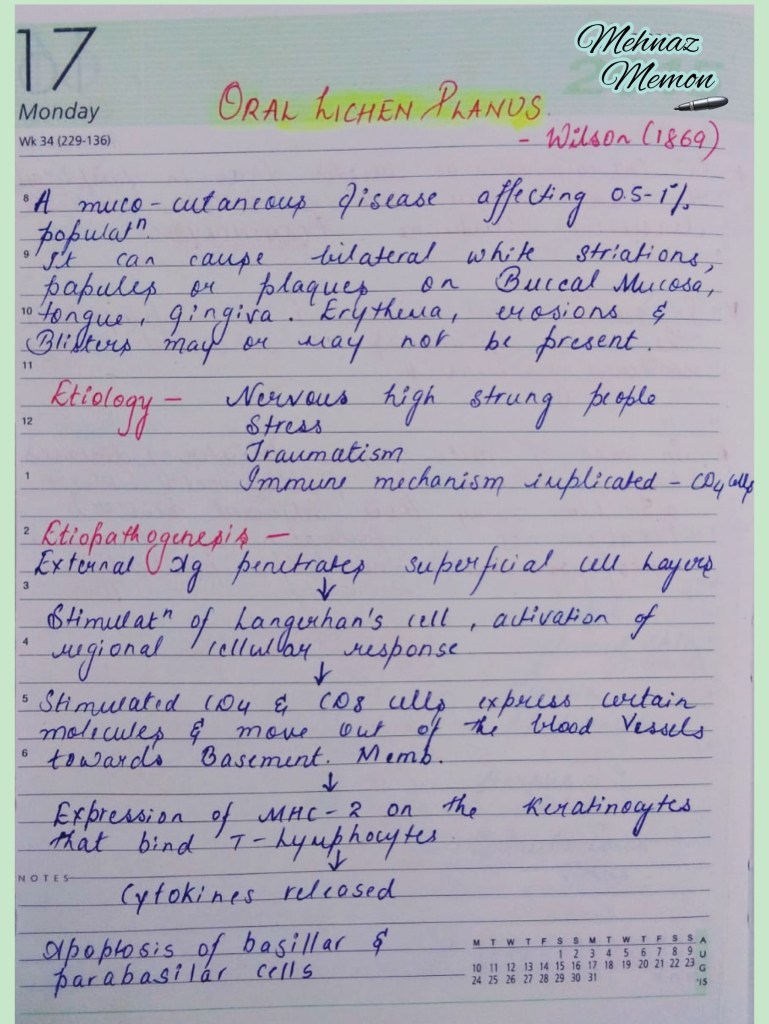 17
Monday
Wk 34 (229-136)
Mehnaz
Memon
ORAL LICHEN PLANUS.
- Wilson (1869)
8 A muco-cutaneous disease affecting 0.5-1%
populatⁿ.
9 It can cause bilateral white striations,
papules or plaques on Buccal Mucosa,
10 tongue, gingiva. Erythema, erosions &
Blisters may or may not be present.
11
Etiology - Nervous high strung people
12 Stress
Traumatism
1 Immune mechanism implicated - CD4 cells
2 Etiopathogenesis -
External Ag penetrates superficial cell layers
3 ↓
Stimulatⁿ of Langerhan's cell, activation of
4 regional cellular response
↓
5 Stimulated CD4 & CD8 cells express certain
molecules & move out of the blood vessels
6 towards Basement. Memb.
↓
Expression of MHC-2 on the keratinocytes
that bind T-Lymphocytes
↓
NOTES
Cytokines released
Apoptosis of basillar &
parabasilar cells
M T W T F S S M T W T F S S
1 2 3 4 5 6 7 8 9
10 11 12 13 14 15 16 17 18 19 20 21 22 23
24 25 26 27 28 29 30 31
AUG '15